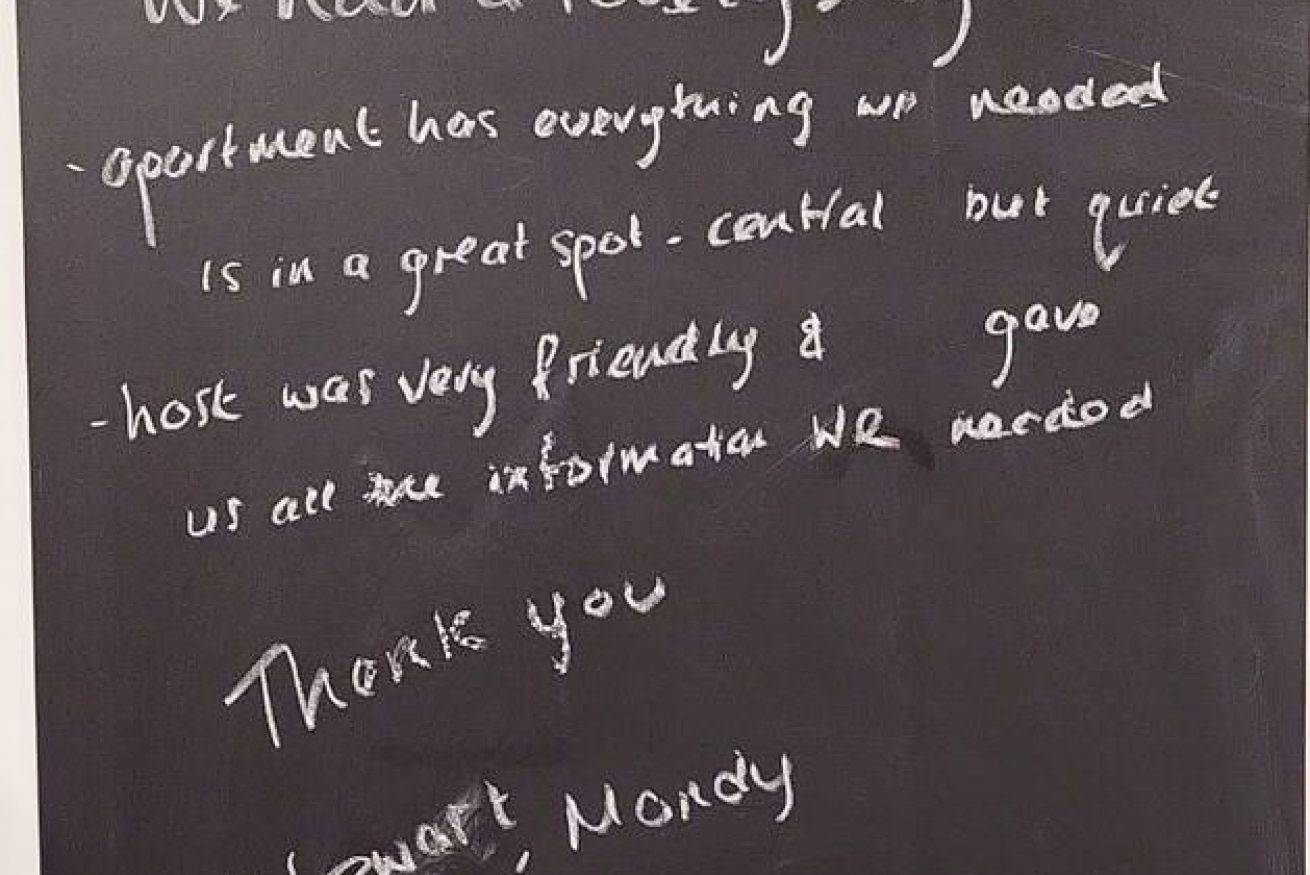 We had a lovely stay
- apartment has everything we needed
is in a great spot - central but quiet
- host was very friendly & gave
us all the information we needed
Thank you
, Mandy